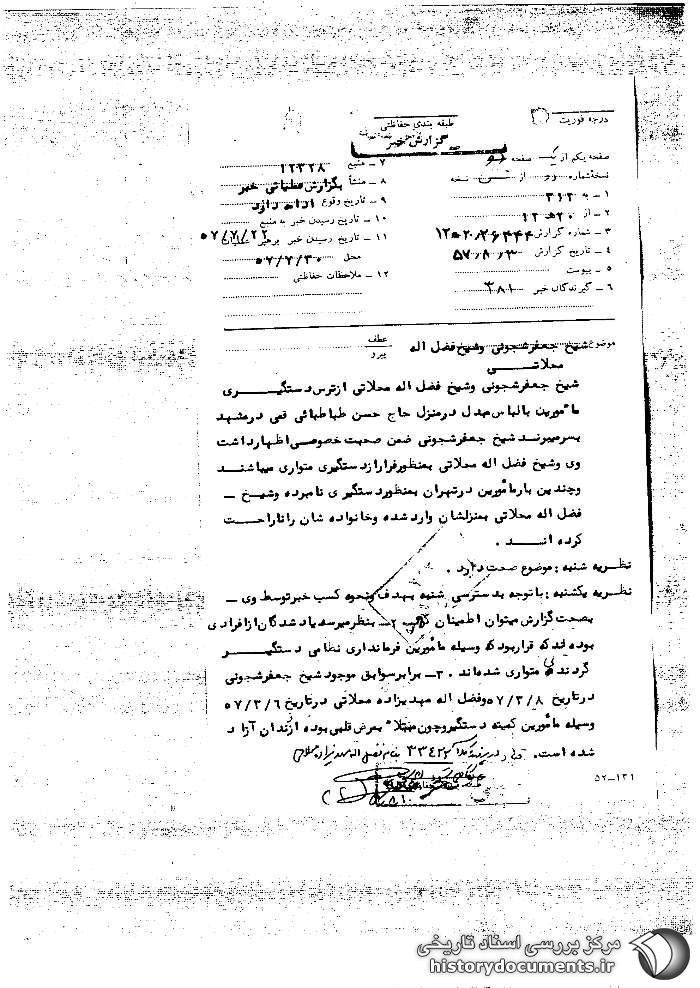 درجه فوریت
طبقه بندی حفاظتی
گزارش خبر
صفحه یکم از یک صفحه
نسخه شماره از نسخه
۱ - به ۳۱۲
۲ - از ۲۰ هـ ۱۲
۳ - شماره گزارش
۴ - تاریخ گزارش ۵۷٫۸٫۳
۵ - پیوست
۶ - گیرندگان خبر ۳۸۱
۷ - منبع ۱۲۳۲۸
۸ - منشأ
۹ - تاریخ وقوع ادامه دارد
۱۰ - تاریخ رسیدن خبر به منبع
۱۱ - تاریخ رسیدن خبر برهبر عملیات ۵۷/۷/۲۲
محل ۵۷/۷/۳۰
۱۲ - ملاحظات حفاظتی
عطف
پیرو
موضوع شیخ جعفر شجونی وشیخ فضل اله
محلاتی
شیخ جعفر شجونی وشیخ فضل اله محلاتی ازترس دستگیری
مأمورین بالباس مبدل درمنزل حاج حسن طباطبائی قمی درمشهد
بسرمیبرند شیخ جعفرشجونی ضمن صحبت خصوصی اظهارداشت
وی وشیخ فضل اله محلاتی بمنظورفرارازدستگیری متواری میباشند
وچندین بارمأمورین درتهران بمنظوردستگیری نامبرده وشیخ -
فضل اله محلاتی بمنزلشان واردشده وخانواده شان راناراحت
کرده اند .
نظریه شنبه : موضوع صحت دارد .
نظریه یکشنبه : باتوجه بدسترسی شنبه بهدف ونحوه کسب خبرتوسط وی -
بصحت گزارش میتوان اطمینان ۲- بنظرمیرسدیادشدگان ازافرادی
بوده اندکه قراربودکه وسیله مأمورین فرمانداری نظامی دستگیر
گردند متواری شده اند . ۳- برابرسوابق موجود شیخ جعفرشجونی
درتاریخ ۵۷/۳/۸ وفضل اله مهدیزاده محلاتی درتاریخ ۵۷/۳/۶
وسیله مأمورین کمیته دستگیروچون مبتلا بمرض قلبی بوده اززندان آزاد
شده است .
۵۲-۱۳۱
مرکز بررسی اسناد تاریخی
historydocuments.ir